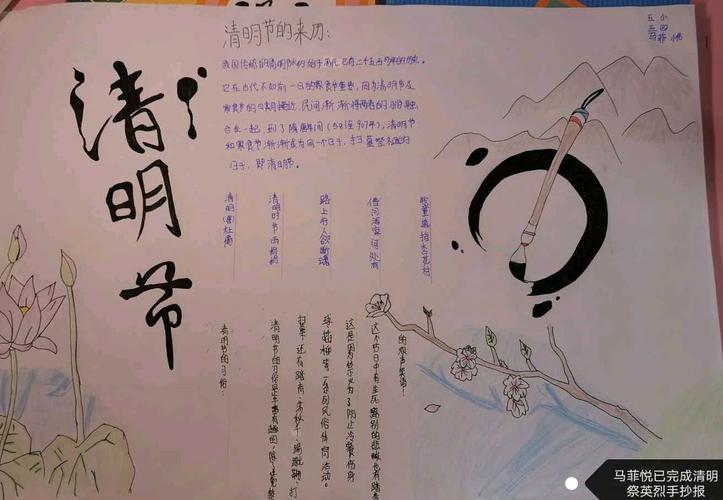 清明节
清明节的来历:
我国传统的清明节大约始于周代,已有二千五百多年的历史。
它在古代不如前一日的寒食节重要,因为清明节及
寒食节的日期接近,民间渐渐将两者的习俗融
合在一起,到了隋唐间(581至907年),清明节
和寒食节渐渐成为同一个日子,扫墓祭祖的
日子,即清明节。
五小
五四
马菲悦
清明(唐)杜
清明时节雨纷纷
路上行人欲断魂
借问酒家何处有
牧童遥指杏花村
清明节的习俗:
清明节的习俗是丰富有趣的,除了
扫墓,还有踏青、荡秋千、蹴鞠、打
球、插柳等一系列风俗体育活动。
这是因为为了防止冷餐伤身
这个节日中有生死离别的悲酸也有踏青
的欢声笑语!
马菲悦已完成清明
祭英烈手抄报